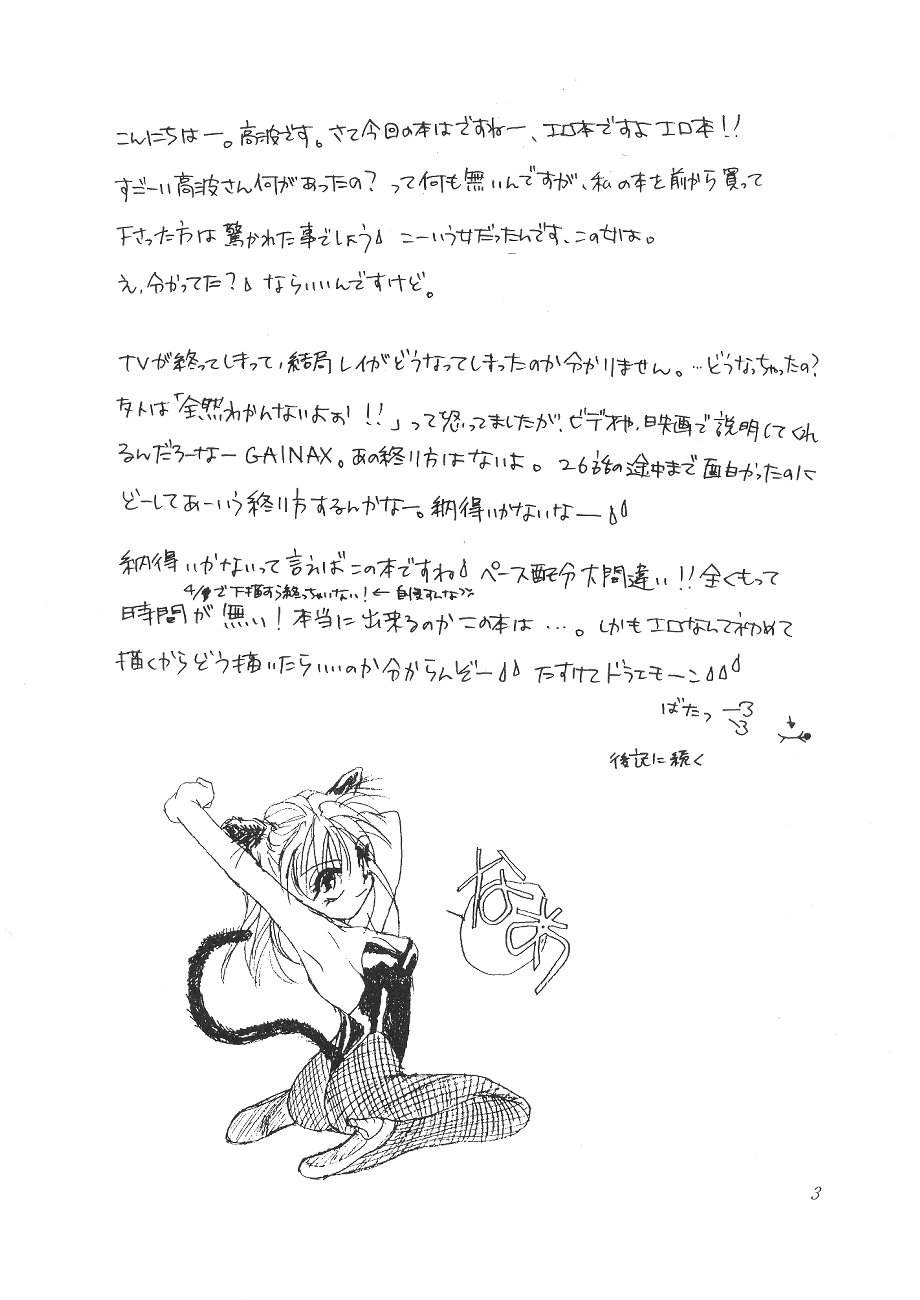 こんにちはー。高波です。さて今回の本はですねー、エロ本ですよエロ本!!
すごーい高波さん何があったの?って何も無いんですが、私の本を前から買って
下さった方は驚かれた事でしょう こーいう女だったんです、この女は。
え、分かってた? ならいいんですけど。
TVが終ってしまって、結局レイがどうなってしまったのか分かりません。…どうなっちゃったの?
友人は「全然わかんないよぉ!!」って怒ってましたが、ビデオや、映画で説明してくれ
るんだろーなーGAINAX。あの終り方はないよ。26話の途中まで面白かったのに
どーしてあーいう終り方するんかなー。納得いかないなー
納得いかないって言えばこの本ですね ペース配分大間違い!!全くもって
で下描すら終っちゃいない!←自慢すんなブー
時間が無い!本当に出来るのかこの本は…。しかもエロなんて初めて
描くからどう描いたらいいのか分からんぞー たすけてドラエモーン
ばたっ
後記に続く
なあ
3